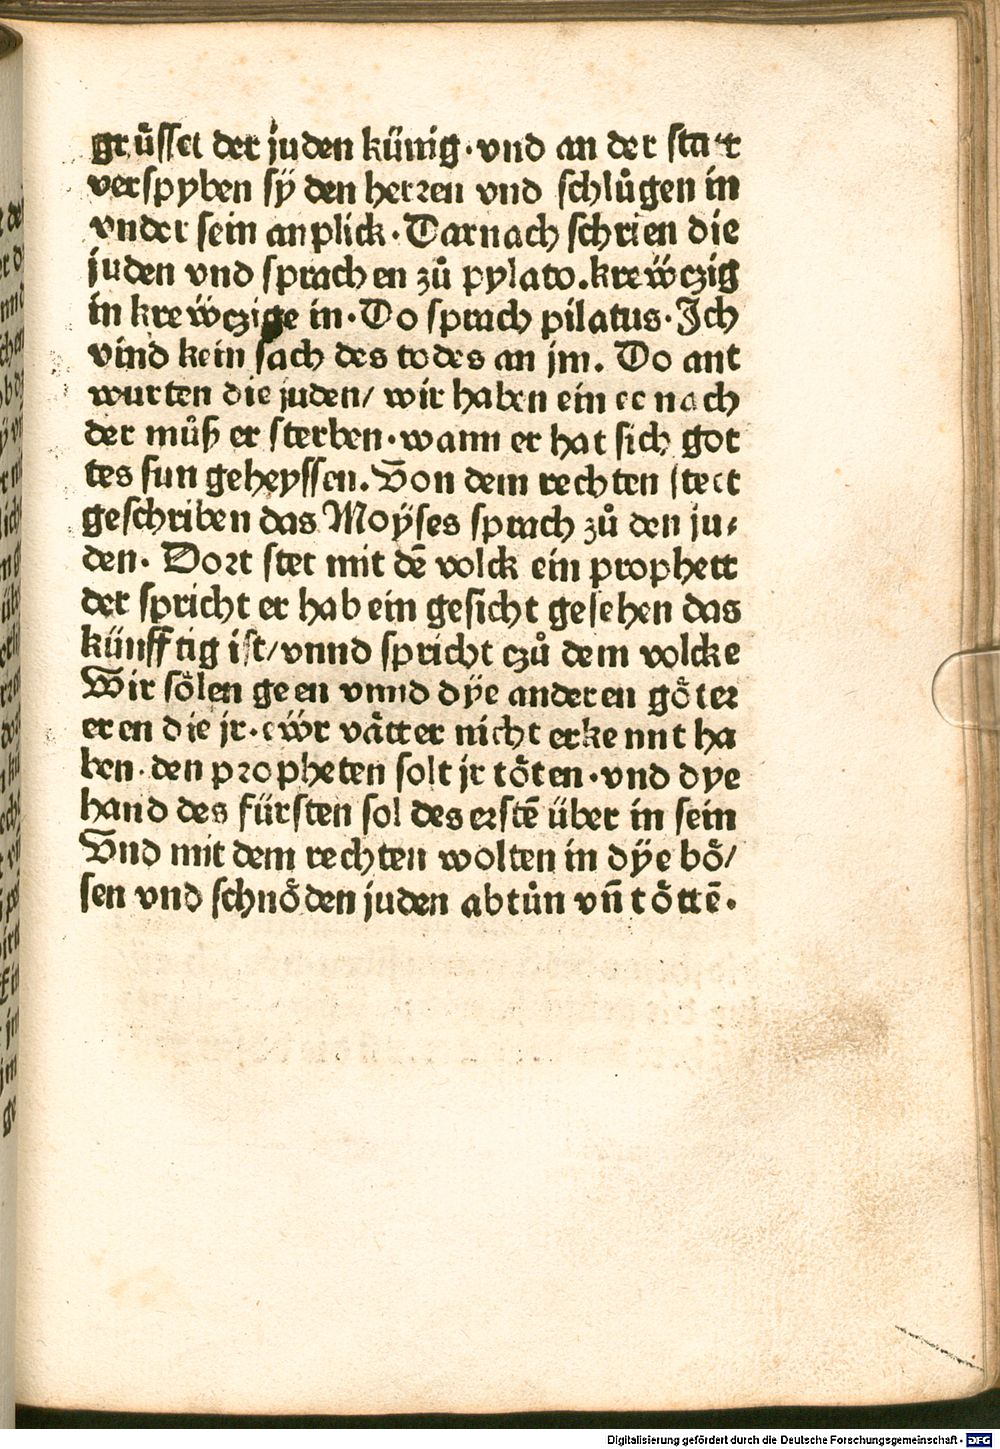 grůsset der juden künig·vnd an der statt
verspyben sÿ den herꝛen vnd schlůgen in
vnder sein anplick·Darnach schrien die
juden vnd sprachen zů pylato.krewczig
in krewczige in·Do sprach pilatus·Ich
vind kein sach des todes an jm. Do ant
wurten die juden/ wir haben ein ee nach
der můß er sterben·wann er hat sich got
tes sun geheyssen.Von dem rechten stett
geschriben das Moÿses sprach zů den ju⸗
den. Doꝛt stet mit dē volck ein prophett
der spricht er hab ein gesicht gesehen das
künfftig ist/vnnd spricht czů dem volcke
Wir sölen geen vnnd dÿe anderen göteꝛ
eren die jr·ewr vätter nicht erkennt ha
ben·den pꝛopheten solt jr töten·vnd dye
hand des fürsten sol des eꝛstē über in sein
Vnd mit dem rechten wolten in dÿe bö/
sen vnd schnöden juden abtůn vn̄ töttē.
Digitalisierung gefördert durch die Deutsche Forschungsgemeinschaft - DFG